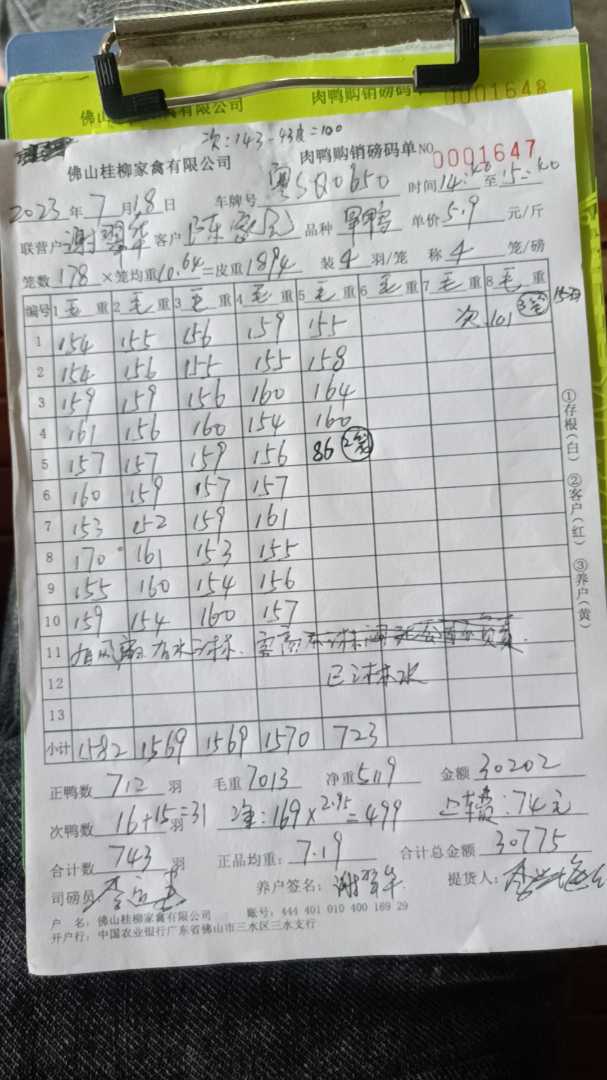 佛山桂柳家禽有限公司 肉鸭购销磅码单 0001648
次:143-43皮=100
佛山桂柳家禽有限公司 肉鸭购销磅码单 NO 0001647
2023年7月18日 车牌号 粤SQ0650 时间14:40至15:40
联营户 谢翠华 客户 品种 单价5.9元/斤
笼数178×笼均重10.64=皮重1894 装4羽/笼 称4笼/磅
编号 1毛重 2毛重 3毛重 4毛重 5毛重 6毛重 7毛重 8毛重
1 154 155 156 159 155 次:101 3笼
2 154 156 155 155 158
3 159 159 156 160 164
4 161 156 160 154 160
5 157 157 159 156 86 2笼
6 160 159 157 157
7 153 152 159 161
8 170 161 153 155
9 155 160 154 156
10 159 154 160 157
11
12 已淋水
13
小计 1582 1569 1569 1570 723
正鸭数712羽 毛重7013 净重5119 金额30202
次鸭数16+15=31羽 169×2.95=499 上车费:74元
合计数743羽 正品均重:7.19 合计总金额30775
司磅员 养户签名:谢翠华 提货人:
户 名:佛山桂柳家禽有限公司 账号:444 401 010 400 169 29
开户行:中国农业银行广东省佛山市三水区三水支行
①存根(白) ②客户(红) ③养户(黄)